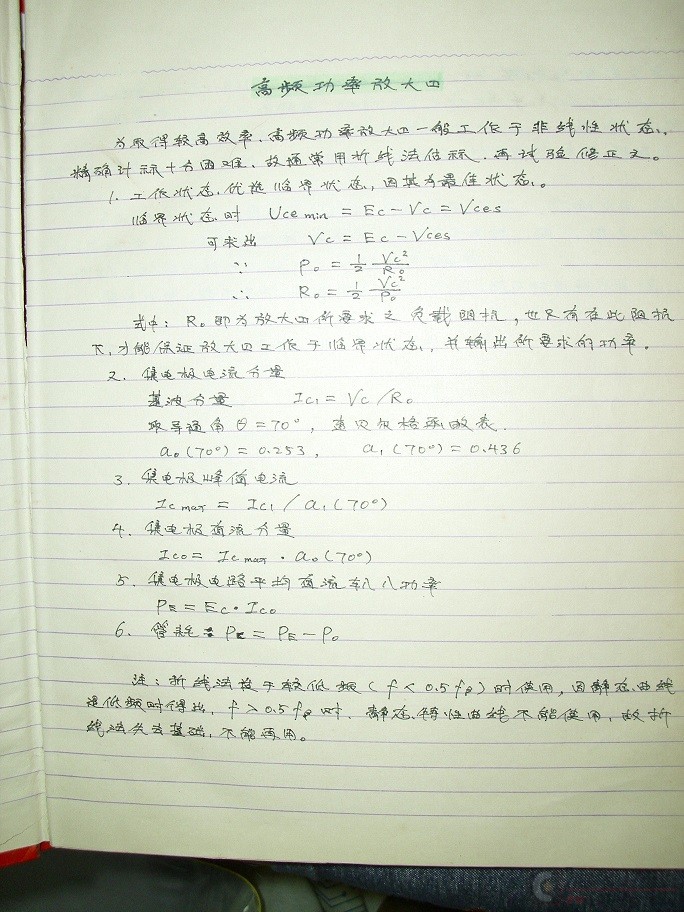 高频功率放大四
为取得较高效率、高频功率放大四一般工作于非线性状态,
精确计祘十分困难、故通常用折线法估祘、再试验修正之。
1. 工作状态、优选临界状态,因其为最佳状态。
临界状态时 Uce min = Ec - Vc = Vces
可求出 Vc = Ec - Vces
∵ Po = 1/2 Vc²/Ro
∴ Ro = 1/2 Vc²/Po
式中: Ro 即为放大四所要求之负载阻抗,也只有在此阻抗
下,才能保证放大四工作于临界状态,并输出所要求的功率。
2. 集电极电流分量
基波分量 Ic1 = Vc/Ro
取导通角 θ = 70°,查贝尔格函数表.
a₀(70°) = 0.253, a₁(70°) = 0.436
3. 集电极峰值电流
Ic max = Ic1 / a₁(70°)
4. 集电极直流分量
Ico = Ic max · a₀(70°)
5. 集电极电路平均直流输入功率
PE = Ec · Ico
6. 管耗: Pc = PE - Po
注:折线法设于较低频(f < 0.5fβ)时使用,因静态曲线
是低频时得出,f > 0.5fβ 时、静态特性曲线不能使用,故折
线法失去基础,不能再用。